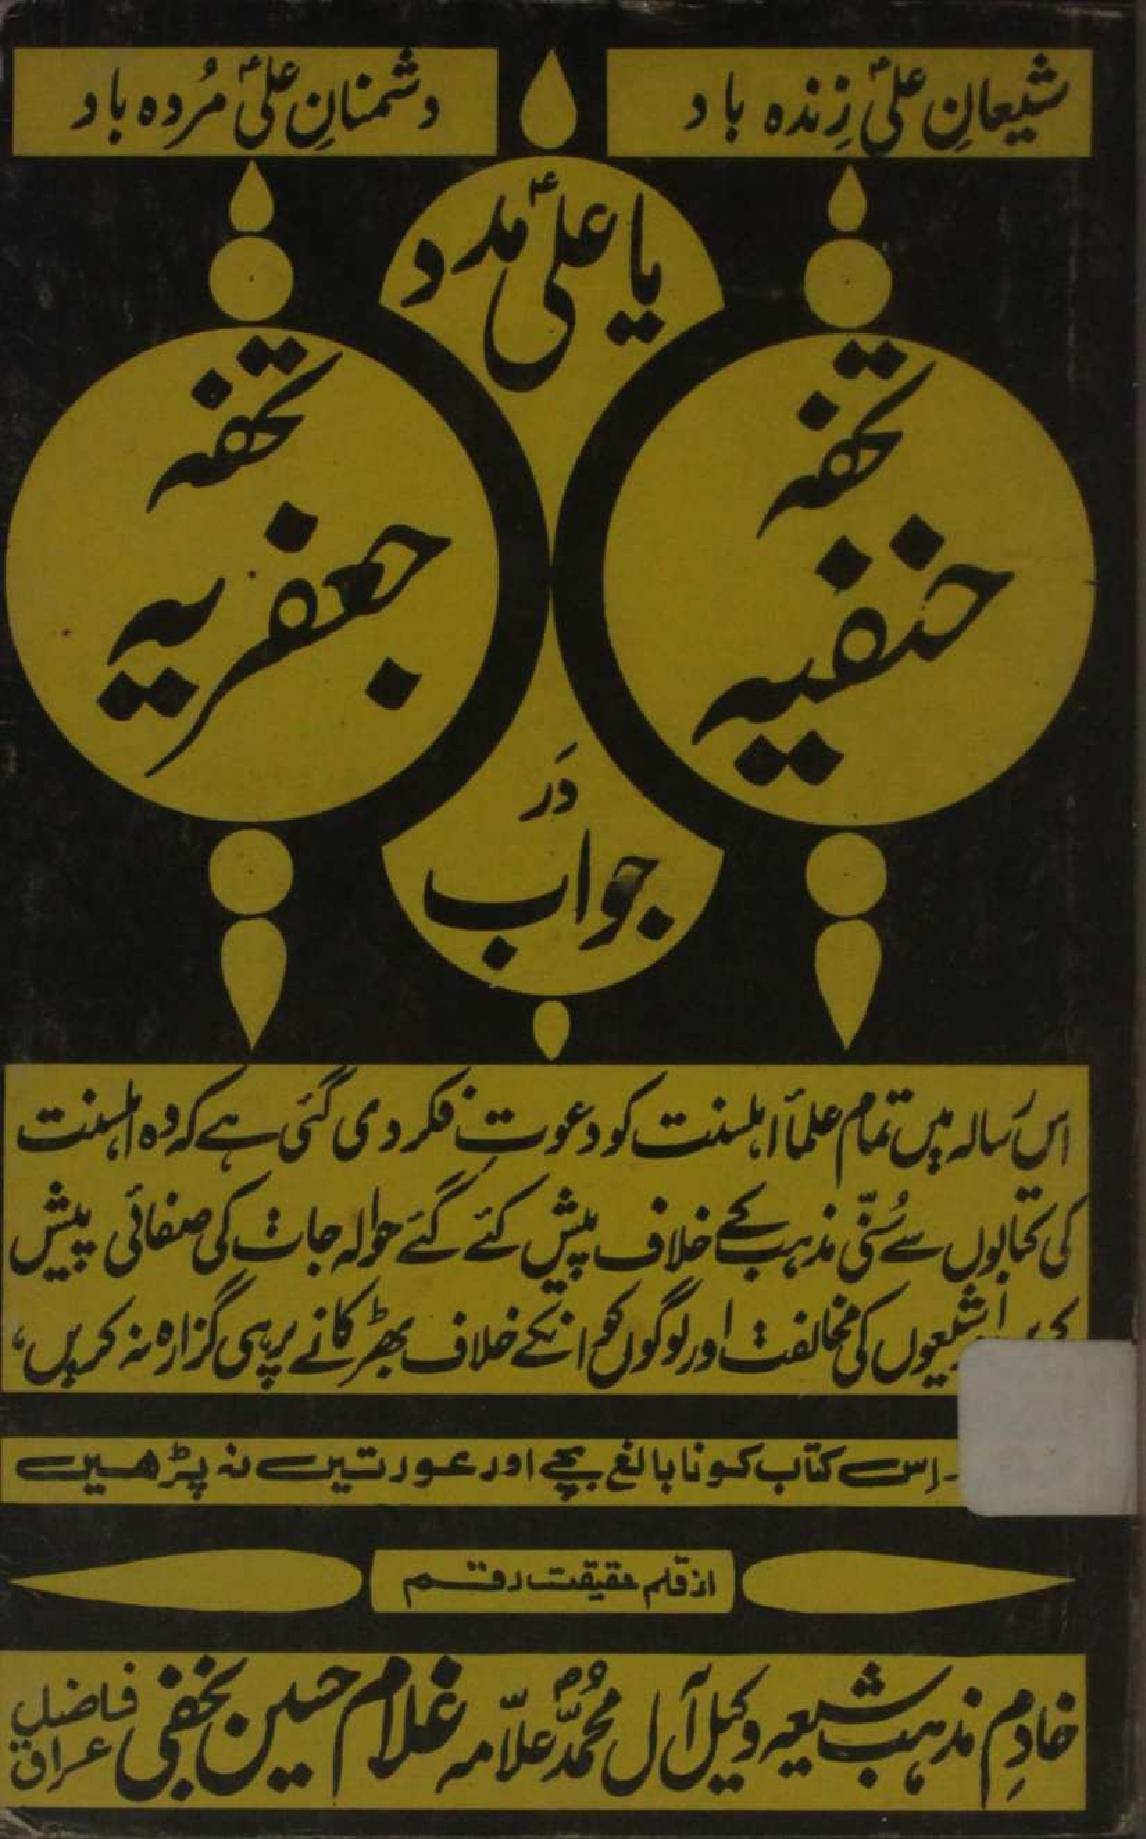 شیعانِ علیؑ زِندہ باد
دشمنانِ علیؑ مُردہ باد
یا علیؑ مدد
تحفہ
حنفیہ
دَر
جواب
تحفہ
جعفریہ
اس رسالہ میں تمام علمأ اہلسنت کو دعوتِ فکر دی گئی ہے کہ وہ اہلسنت
کی کتابوں سے سُنّی مذہب کے خلاف پیش کئے گئے حوالہ جات کی صفائی پیش
شیعوں کی مخالفت اور لوگوں کو انکے خلاف بھڑکانے پر ہی گزارہ نہ کریں،
۔اس کتاب کو نابالغ بچے اور عورتیں نہ پڑھیں
از قلم حقیقت رقم
خادِم مذہب شیعہ وکیل آل محُمّدؐ علّامہ غلام حسین نجفی فاضلِ عراق